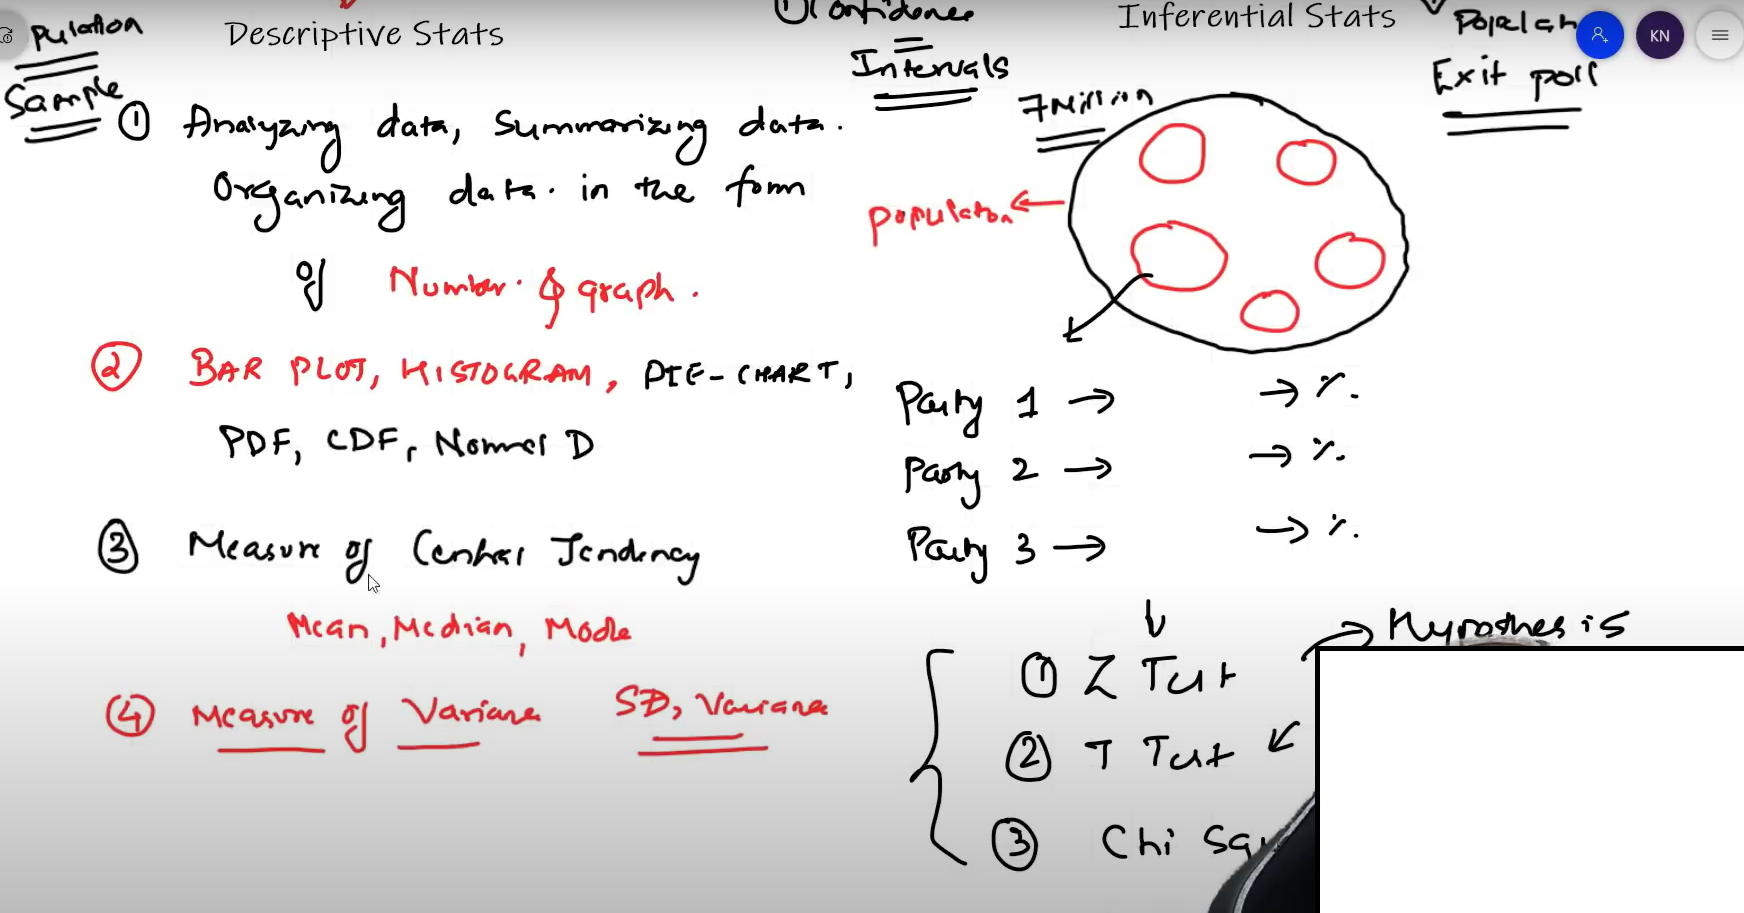 pulation
Sample
Descriptive Stats
① Analyzing data, Summarizing data.
Organizing data. in the form
of Number. & graph.
② BAR PLOT, HISTOGRAM, PIE-CHART,
PDF, CDF, Normal D
③ Measure of Central Tendency
Mean, Median, Mode
④ Measure of Variance SD, Variance
① Confidence
Intervals
Inferential Stats
Exit poll
KN
7 Million
population
Party 1 → → %.
Party 2 → → %.
Party 3 → → %.
① Z Test → Hypothesis
② T Test
③ Chi Squ